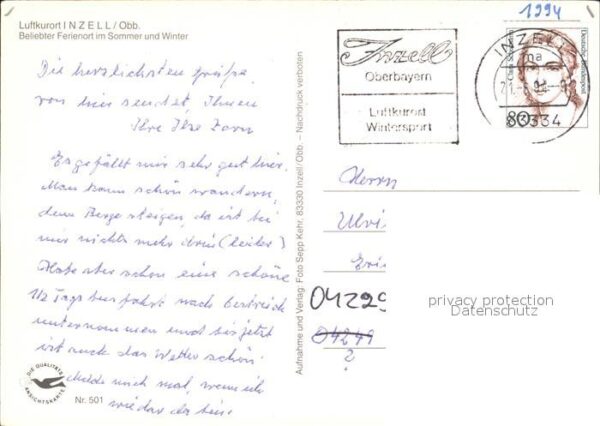 1994
Luftkurort INZELL/Obb.
Beliebter Ferienort im Sommer und Winter
Die herzlichsten Grüße
von hier sendet Ihnen
Ihre Ilse
Es gefällt mir sehr gut hier.
Man kann schön wandern,
denn Berge steigen, da ist bei
mir nichts mehr drin (leider)
Habe aber schon eine schöne
1/2 Tags busfahrt nach
unternommen und bis jetzt
ist auch das Wetter schön
melde mich mal, wenn ich
wieder da bin.
DIE QUALITÄTS
ANSICHTSKARTE
Nr. 501
Aufnahme und Verlag: Foto Sepp Kehr, 83330 Inzell/Obb. – Nachdruck verboten
Inzell
Oberbayern
Luftkurort
Wintersport
INZELL
ma
83334
Deutsche Bundespost
Herrn
Ulri
04229
04279
?
privacy protection
Datenschutz